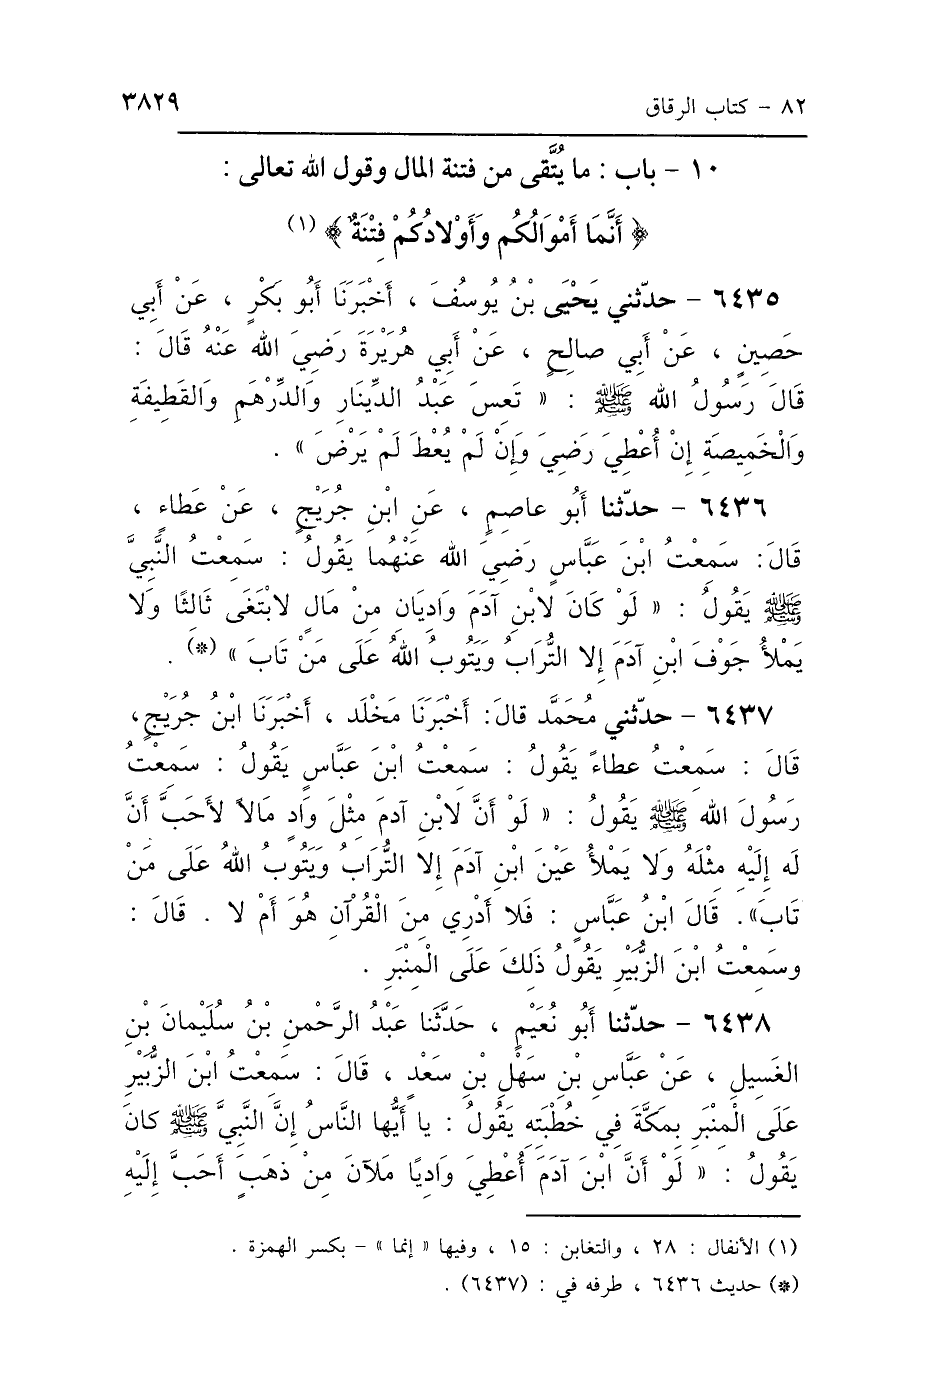 ٨٢ - كتاب الرقاق ٣٨٢٩
١٠ - باب : ما يُتَّقى من فتنة المال وقول الله تعالى :
﴿ أَنَّمَا أَمْوَالُكُم وَأَوْلادُكُمْ فِتْنَةٌ ﴾ (١)
٦٤٣٥ - حدّثني يَحْيَى بْنُ يُوسُفَ ، أَخْبَرَنَا أَبُو بَكْرٍ ، عَنْ أَبِي
حَصِينٍ ، عَنْ أَبِي صالِحٍ ، عَنْ أَبِي هُرَيْرَةَ رَضِيَ الله عَنْهُ قَالَ :
قَالَ رَسُولُ الله ﷺ : « تَعِسَ عَبْدُ الدِّينَارِ وَالدِّرْهَمِ وَالقَطِيفَةِ
وَالْخَمِيصَةِ إِنْ أُعْطِيَ رَضِيَ وَإِنْ لَمْ يُعْطَ لَمْ يَرْضَ » .
٦٤٣٦ - حدّثنا أَبُو عاصِمٍ ، عَنِ ابْنِ جُرَيْجٍ ، عَنْ عَطاءٍ ،
قَالَ : سَمِعْتُ ابْنَ عَبَّاسٍ رَضِيَ الله عَنْهُما يَقُولُ : سَمِعْتُ النَّبِيَّ
ﷺ يَقُولُ : « لَوْ كَانَ لابْنِ آدَمَ وَادِيَانِ مِنْ مَالٍ لابْتَغَى ثَالِثًا وَلا
يَمْلأُ جَوْفَ ابْنِ آدَمَ إلا التُّرَابُ وَيَتُوبُ اللهُ عَلَى مَنْ تَابَ » (*) .
٦٤٣٧ - حدّثني مُحَمَّد قالَ : أَخْبَرَنَا مَخْلَد ، أَخْبَرَنَا ابْنُ جُرَيْجٍ،
قَالَ : سَمِعْتُ عطاءً يَقُولُ : سَمِعْتُ ابْنَ عَبَّاسٍ يَقُولُ : سَمِعْتُ
رَسُولَ الله ﷺ يَقُولُ : « لَوْ أَنَّ لابْنِ آدمَ مِثْلَ وَادٍ مَالاً لأَحَبَّ أَنَّ
لَه إِلَيْهِ مِثْلَهُ وَلا يَمْلأُ عَيْنَ ابْنِ آدَمَ إلا التُّرَابُ وَيَتُوبُ اللهُ عَلَى مَنْ
تَابَ». قَالَ ابْنُ عَبَّاسٍ : فَلا أَدْرِي مِنَ الْقُرْآنِ هُوَ أَمْ لا . قَالَ :
وسَمِعْتُ ابْنَ الزُّبَيْرِ يَقُولُ ذَلِكَ عَلَى الْمِنْبَرِ .
٦٤٣٨ - حدّثنا أَبُو نُعَيْمٍ ، حَدَّثَنا عَبْدُ الرَّحْمنِ بْنُ سُلَيْمانَ بْنِ
الغَسِيلِ ، عَنْ عَبَّاسِ بْنِ سَهْلِ بْنِ سَعْدٍ ، قَالَ : سَمِعْتُ ابْنَ الزُّبَيْرِ
عَلَى الْمِنْبَرِ بِمَكَّةَ فِي خُطْبَتِهِ يَقُولُ : يا أَيُّها النَّاسُ إنَّ النَّبِيَّ ﷺ كانَ
يَقُولُ : « لَوْ أَنَّ ابْنَ آدَمَ أُعْطِيَ وَادِيًا مَلآنَ مِنْ ذهَبٍ أَحَبَّ إِلَيْهِ
(١) الأنفال : ٢٨ ، والتغابن : ١٥ ، وفيها « إنما » - بكسر الهمزة .
(*) حديث ٦٤٣٦ ، طرفه في : (٦٤٣٧) .